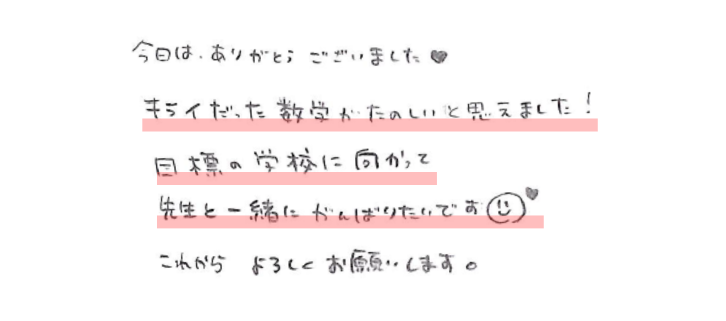 今日は、ありがとうございました♥
キライだった数学がたのしいと思えました!
目標の学校に向かって
先生と一緒にがんばりたいです☺♥
これから よろしくお願いします。